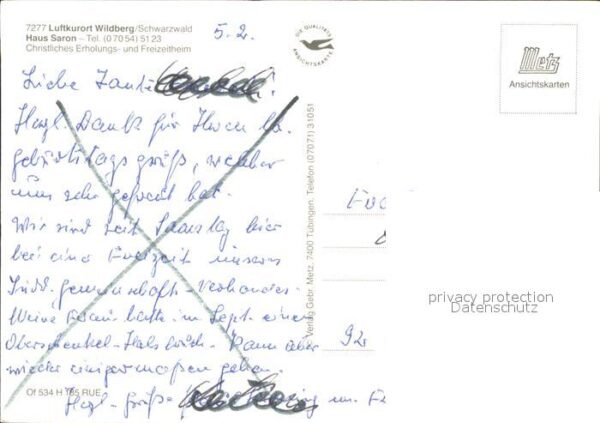 7277 Luftkurort Wildberg/Schwarzwald
Haus Saron – Tel. (0 70 54) 51 23
Christliches Erholungs- und Freizeitheim
5.2.
DIE QUALITÄTS
ANSICHTSKARTE
Metz
Ansichtskarten
Liebe
Herzl. Dank für Ihren lb.
Geburtstagsgruß, welcher
uns sehr gefreut hat.
Wir sind seit Samstag hier
bei eine Freizeit unseres
Südd. Gemeinschaft-Verbandes.
Meine Frau hatte im Sept. einen
Oberschenkel-Halsbruch. Kann aber
wieder einigermaßen gehen.
Herzl. Grüße
Verlag Gebr. Metz, 7400 Tübingen, Telefon (0 70 71) 3 10 51
92
privacy protection
Datenschutz
Of 534 H 185 RUE